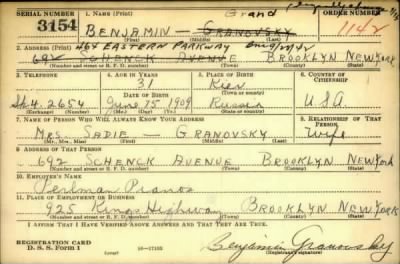 SERIAL NUMBER 1. NAME (Print) Grand ORDER NUMBER
3154 BENJAMIN — GRANOVSKY 1142
(First) (Middle) (Last)
2. ADDRESS (Print) 464 EASTERN PARKWAY
692 SCHENCK AVENUE BROOKLYN NEW YORK
(Number and street or R. F. D. number) (Town) (County) (State)
3. TELEPHONE 4. AGE IN YEARS 5. PLACE OF BIRTH 6. COUNTRY OF CITIZENSHIP
31 Kiev
DATE OF BIRTH
2654 June 15 1909 Russia U.S.A.
(Exchange) (Number) (Mo.) (Day) (Yr.) (State or country)
7. NAME OF PERSON WHO WILL ALWAYS KNOW YOUR ADDRESS 8. RELATIONSHIP OF THAT PERSON
MRS. SADIE — GRANOVSKY Wife
(Mr., Mrs., Miss) (First) (Middle) (Last)
9. ADDRESS OF THAT PERSON
692 SCHENCK AVENUE BROOKLYN NEW YORK
(Number and street or R. F. D. number) (Town) (County) (State)
10. EMPLOYER'S NAME
Perlman Pianos
11. PLACE OF EMPLOYMENT OR BUSINESS
925 Kings Highway BROOKLYN NEW YORK
(Number and street or R. F. D. number) (Town) (County) (State)
I AFFIRM THAT I HAVE VERIFIED ABOVE ANSWERS AND THAT THEY ARE TRUE.
REGISTRATION CARD
D. S. S. FORM 1 Benjamin Granovsky
(Registrant's signature)